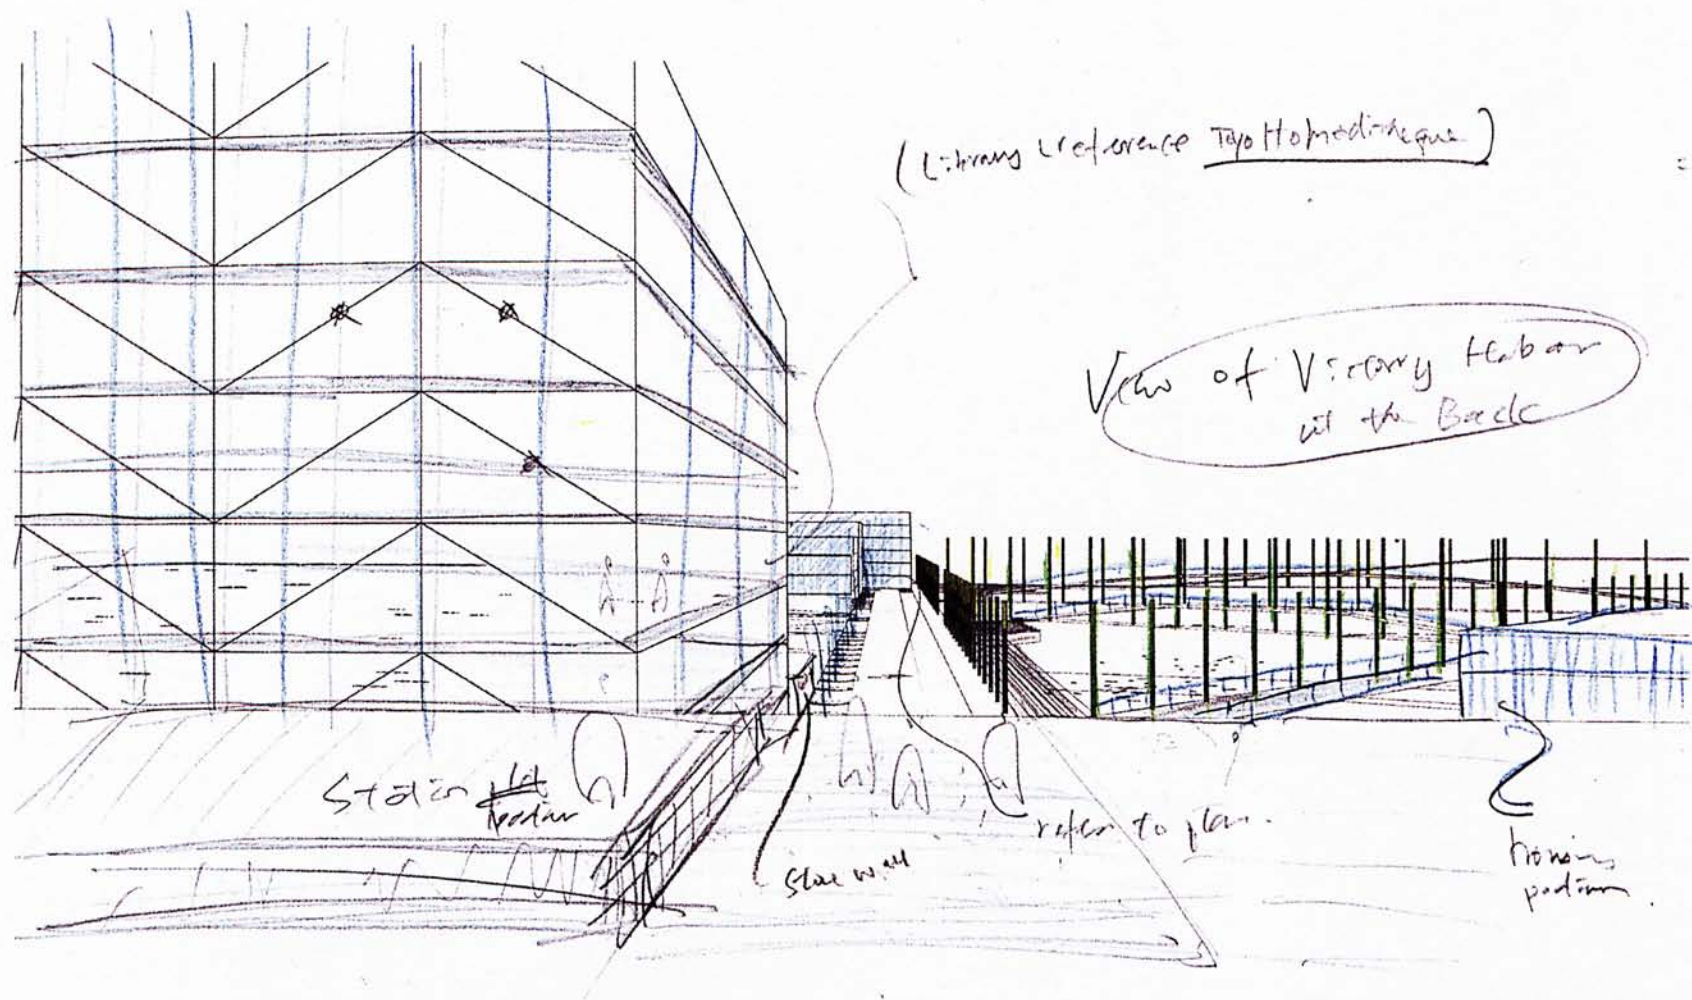 (Library reference Toyo Ito mediatheque)
View of Victory Habour
at the Back
Station
podium
refer to plan.
Stone wall
housing
podium.